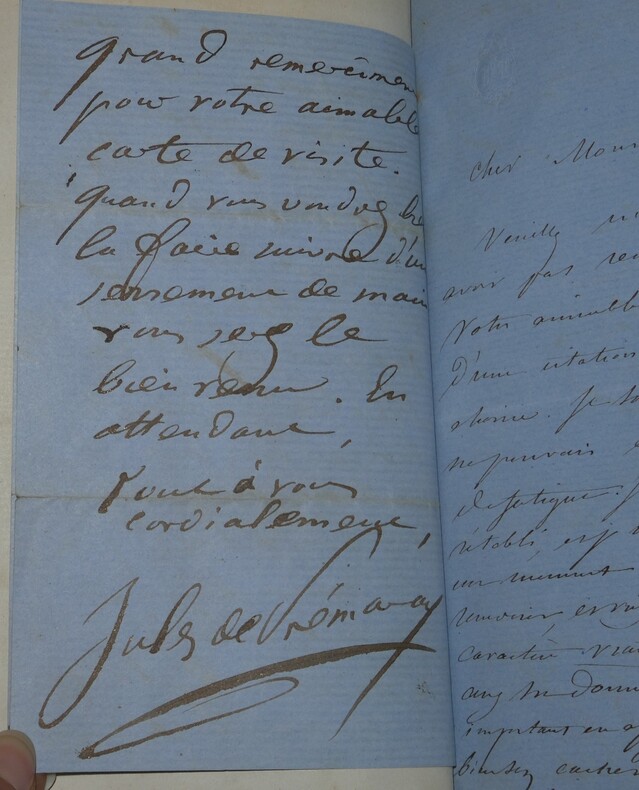 Grand remerciment
pour votre aimable
carte de visite.
quand vous voudrez
la faire suivre d'un
serrement de main
vous serez le
bien venu. En
attendant,
tout à vous
cordialement,
Jules de Prémaray
cher Mons
Veuillez
avoir pas
Votre aimable
d'une citation
Je
ne pouvais
de fatigue.
rétabli,
un moment
caractère vrai
important en